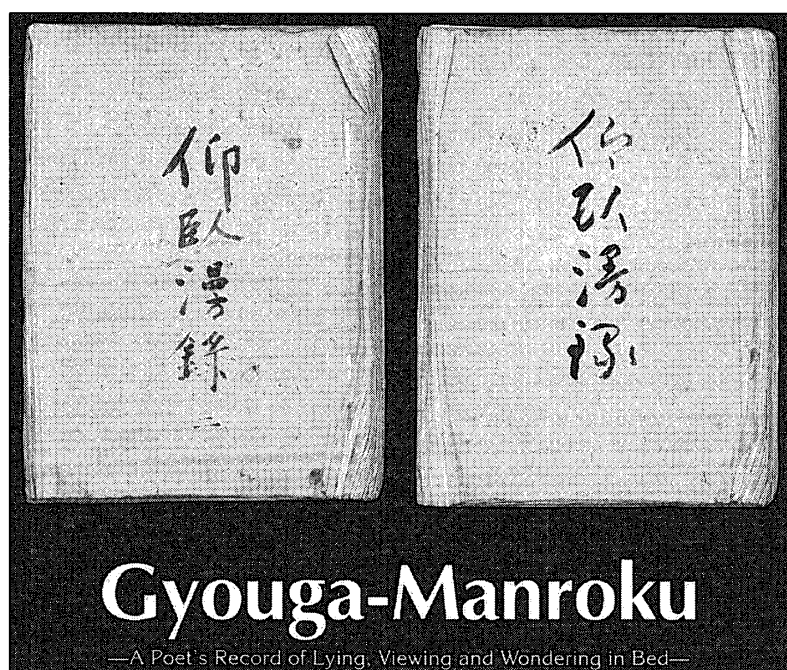 仰臥漫録
仰臥漫録
二
Gyouga-Manroku
—A Poet's Record of Lying, Viewing and Wondering in Bed—